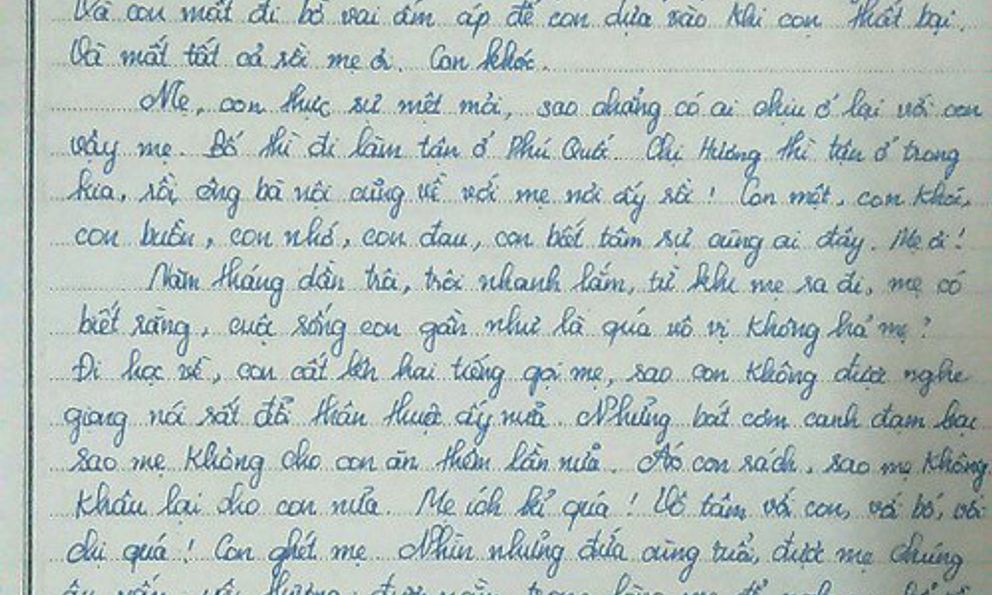 Và con mất đi bờ vai ấm áp để con dựa vào khi con thất bại.
Và mất tất cả rồi mẹ ơi. Con khóc.
Mẹ, con thực sự mệt mỏi, sao chẳng có ai chịu ở lại với con
vậy mẹ. Bố thì đi làm tận ở Phú Quốc. Chị Hương thì tận ở trong
kia, rồi ông bà nội cũng về với mẹ nơi ấy rồi! Con mệt, con khóc,
con buồn, con nhớ, con đau, con biết tâm sự cùng ai đây. Mẹ ơi!
Năm tháng dần trôi, trôi nhanh lắm, từ khi mẹ ra đi, mẹ có
biết rằng, cuộc sống con gần như là quá vô vị không hả mẹ?
Đi học về, con cất lên hai tiếng gọi mẹ, sao con không được nghe
giọng nói rất đỗi thân thuộc ấy nữa. Những bát cơm canh đạm bạc
sao mẹ không cho con ăn thêm lần nữa. Áo con rách, sao mẹ không
khâu lại cho con nữa. Mẹ ích kỉ quá! Vô tâm với con, với bố, với
chị quá! Con ghét mẹ. Nhìn những đứa cùng tuổi, được mẹ chúng